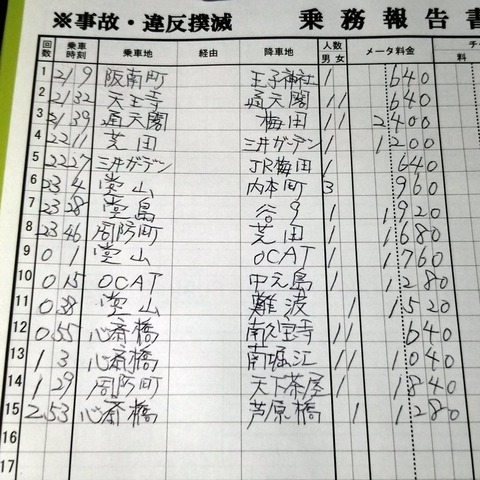 ※事故・違反撲滅 乗務報告書
回数 乗車時刻 乗車地 経由 降車地 人数 男 女 メータ料金 チ 料
1 21 9 阪南町 王子神社 1 640
2 21 32 天王寺 通天閣 1 1 640
3 21 39 通天閣 梅田 1 1 2400
4 22 11 芝田 三井ガーデン 1 1200
5 22 17 三井ガーデン JR梅田 1 640
6 23 4 堂山 内本町 3 960
7 23 28 堂島 谷9 1 1920
8 23 46 周防町 芝田 1 1680
9 0 1 堂山 OCAT 1 1760
10 0 15 OCAT 中之島 1 1280
11 0 38 堂山 難波 1 1520
12 0 55 心斎橋 南久宝寺 1 1 640
13 1 3 心斎橋 南堀江 1 1 1040
14 1 29 周防町 天下茶屋 1 1840
15 2 53 心斎橋 芦原橋 1 1280
16
17